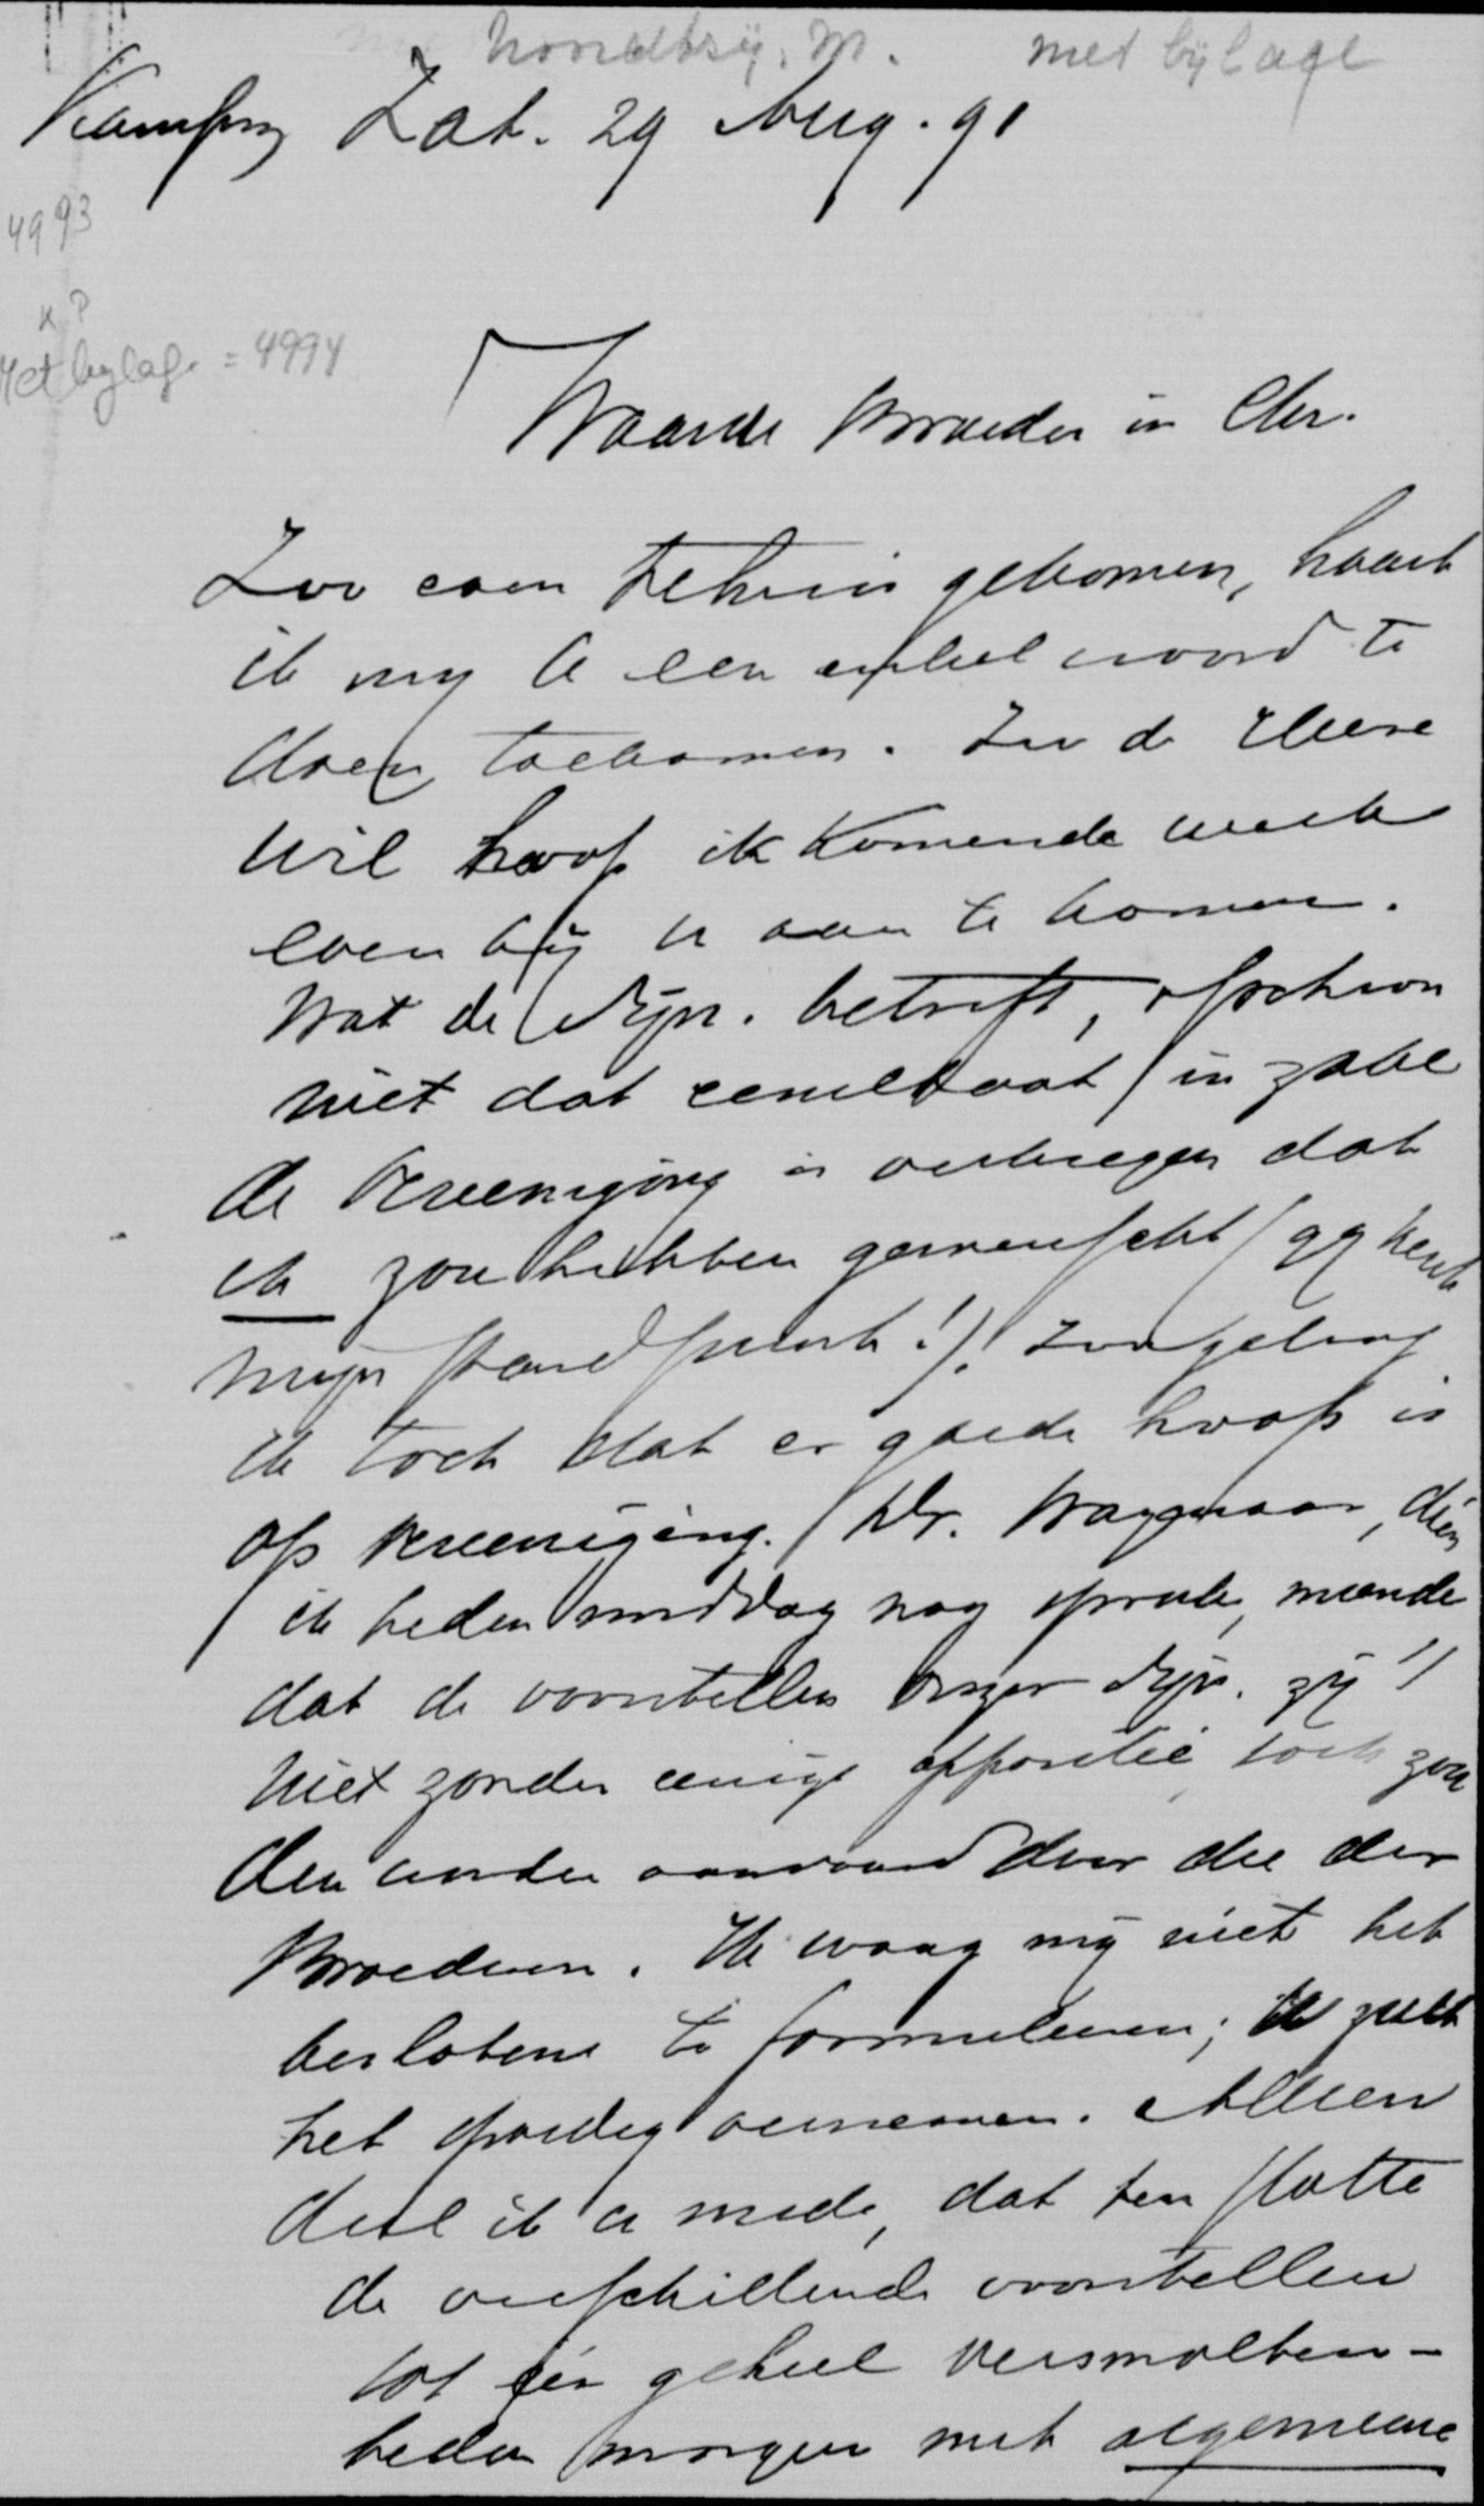 Noordtzij, M. met bijlage
Kampen Zat. 29 Aug. 91
4993
x?
Met bylage = 4994
Waarde Broeder in Chr.
Zoo even tehuis gekomen, haast
ik my U een enkel woord te
doen toekomen. Zoo de Heere
wil hoop ik komende week
even bij U aan te komen.
Wat de Syn. betreft, ofschoon
niet dat resultaat in zake
de Vereeniging is verkregen dat
ik zou hebben gewenscht (gy kent
mijn standpunt!)! zoo geloof
ik toch dat er goede hoop is
op vereeniging. Dr. Wagenaar, dien
ik heden middag nog sprak, meende
dat de voorstellen onzer Syn. zij 't
niet zonder eenige oppositie toch zou
den worden aanvaard door die der
Broederen. Ik waag mij niet het
beslotene te formuleeren; U zult
het spoedig vernemen. Alleen
deel ik U mede, dat ten slotte
de verschillende voorstellen
tot één geheel versmolten -
heden morgen met algemeene